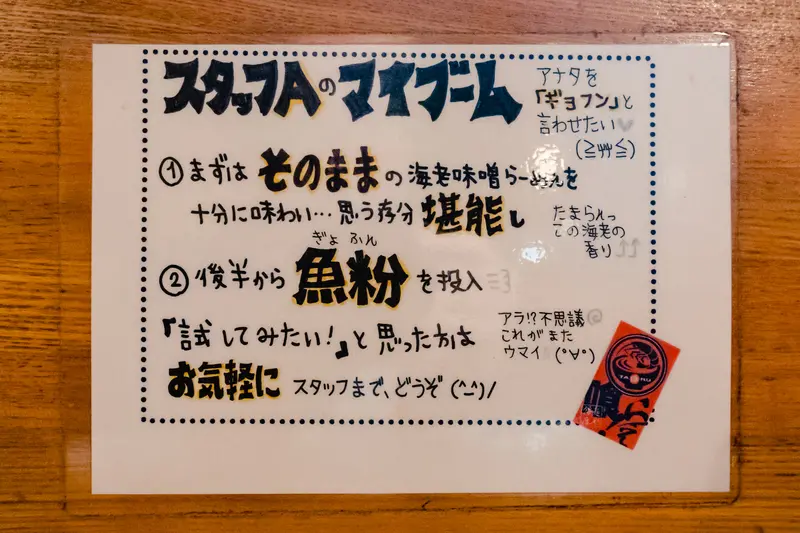 スタッフAのマイブーム
アナタを
「ギョフン」と
言わせたい♥
(≧艸≦)
①まずは そのままの海老味噌らーめんを
十分に味わい…思う存分堪能し
たまらんっ
この海老の
香り↑↑
ぎょ ふん
②後半から魚粉を投入
『試してみたい!』と思った方は
アラ!?不思議
これがまた
ウマイ (°∀°)
お気軽に スタッフまで、どうぞ (^-^)/